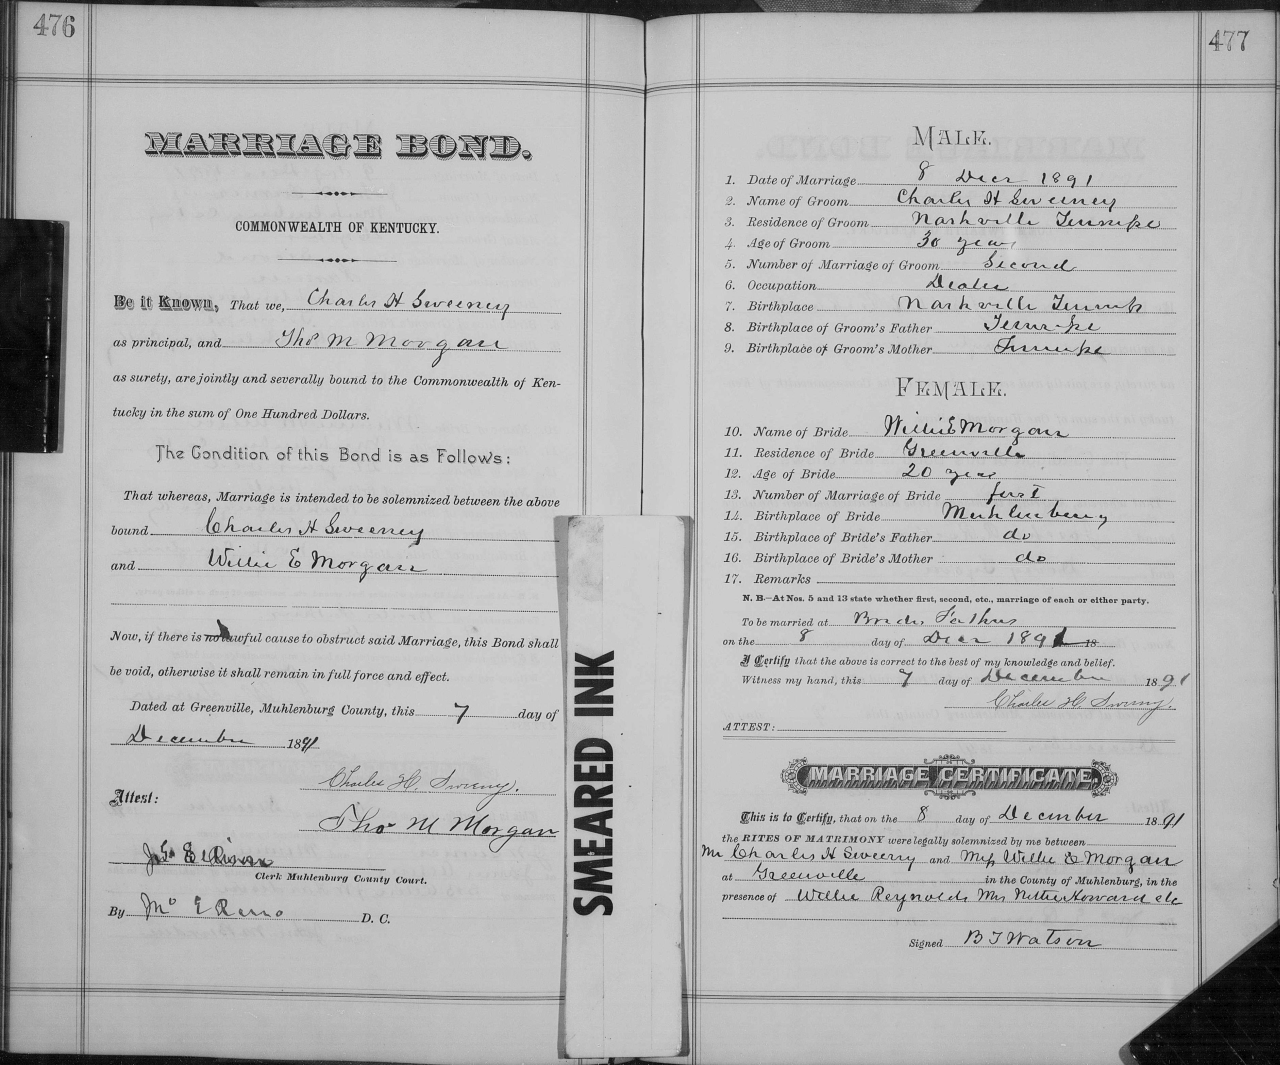 476
MARRIAGE BOND.
COMMONWEALTH OF KENTUCKY.
Be it Known, That we, Charles H Sweeney
as principal, and Thos M Morgan
as surety, are jointly and severally bound to the Commonwealth of Ken-
tucky in the sum of One Hundred Dollars.
The Condition of this Bond is as Follows:
That whereas, Marriage is intended to be solemnized between the above
bound Charles H Sweeney
and Willie E Morgan
Now, if there is no lawful cause to obstruct said Marriage, this Bond shall
be void, otherwise it shall remain in full force and effect.
Dated at Greenville, Muhlenburg County, this 7 day of
December 1891
Charles H. Sweeny.
Attest:
Thos M Morgan
Clerk Muhlenburg County Court.
By D. C.
SMEARED INK
477
MALE.
1. Date of Marriage 8 Decr 1891
2. Name of Groom Charles H Sweeney
3. Residence of Groom Nashville
4. Age of Groom 30 years
5. Number of Marriage of Groom Second
6. Occupation Dealer
7. Birthplace Nashville
8. Birthplace of Groom's Father
9. Birthplace of Groom's Mother
FEMALE.
10. Name of Bride Willie E Morgan
11. Residence of Bride Greenville
12. Age of Bride 20 years
13. Number of Marriage of Bride first
14. Birthplace of Bride Muhlenburg
15. Birthplace of Bride's Father do
16. Birthplace of Bride's Mother do
17. Remarks
N. B.—At Nos. 5 and 13 state whether first, second, etc., marriage of each or either party.
To be married at Brides Fathers
on the 8 day of Decr 1891 18
I Certify that the above is correct to the best of my knowledge and belief.
Witness my hand, this 7 day of December 1891
Charles H. Sweeny.
ATTEST:
MARRIAGE CERTIFICATE.
This is to Certify, that on the 8 day of December 1891
the RITES OF MATRIMONY were legally solemnized by me between
Mr Charles H Sweeney and Miss Willie E Morgan
at Greenville in the County of Muhlenburg, in the
presence of Willie Reynolds Mrs Nettie Howard etc
Signed B T Watson